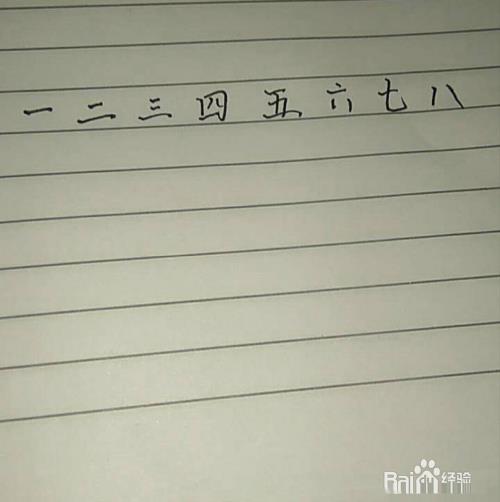 一 二 三 四 五 六 七 八
Bai 经验